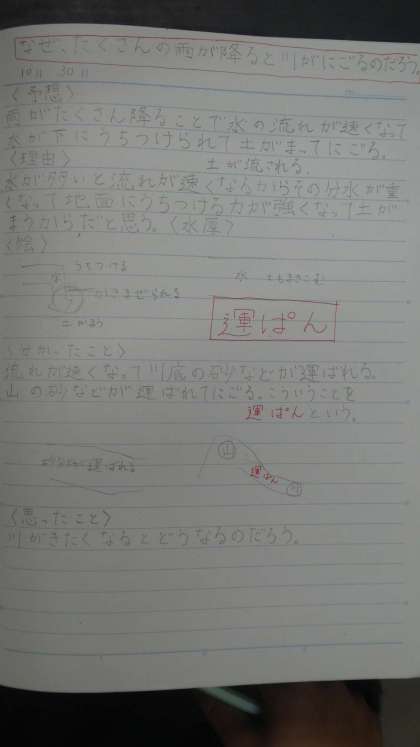 なぜ、たくさんの雨が降ると川がにごるのだろう。
10月 30日
〈予想〉
雨がたくさん降ることで水の流れが速くなって
水が下にうちつけられて土がまってにごる。
〈理由〉 土が流される。
水が多いと流れが速くなるからその分水が重
くなって地面にうちつける力が強くなって土が
まうからだと思う。〈水厚〉
〈絵〉
うちつける
水 水 土もまきこむ
かきまぜられる
土がまう
運ぱん
〈分かったこと〉
流れが速くなって川底の砂などが運ばれる。
山の砂などが運ばれてにごる。こういうことを
運ぱんという。
山
砂などが運ばれる 運ぱん
〈思ったこと〉
川がきたなくなるとどうなるのだろう。